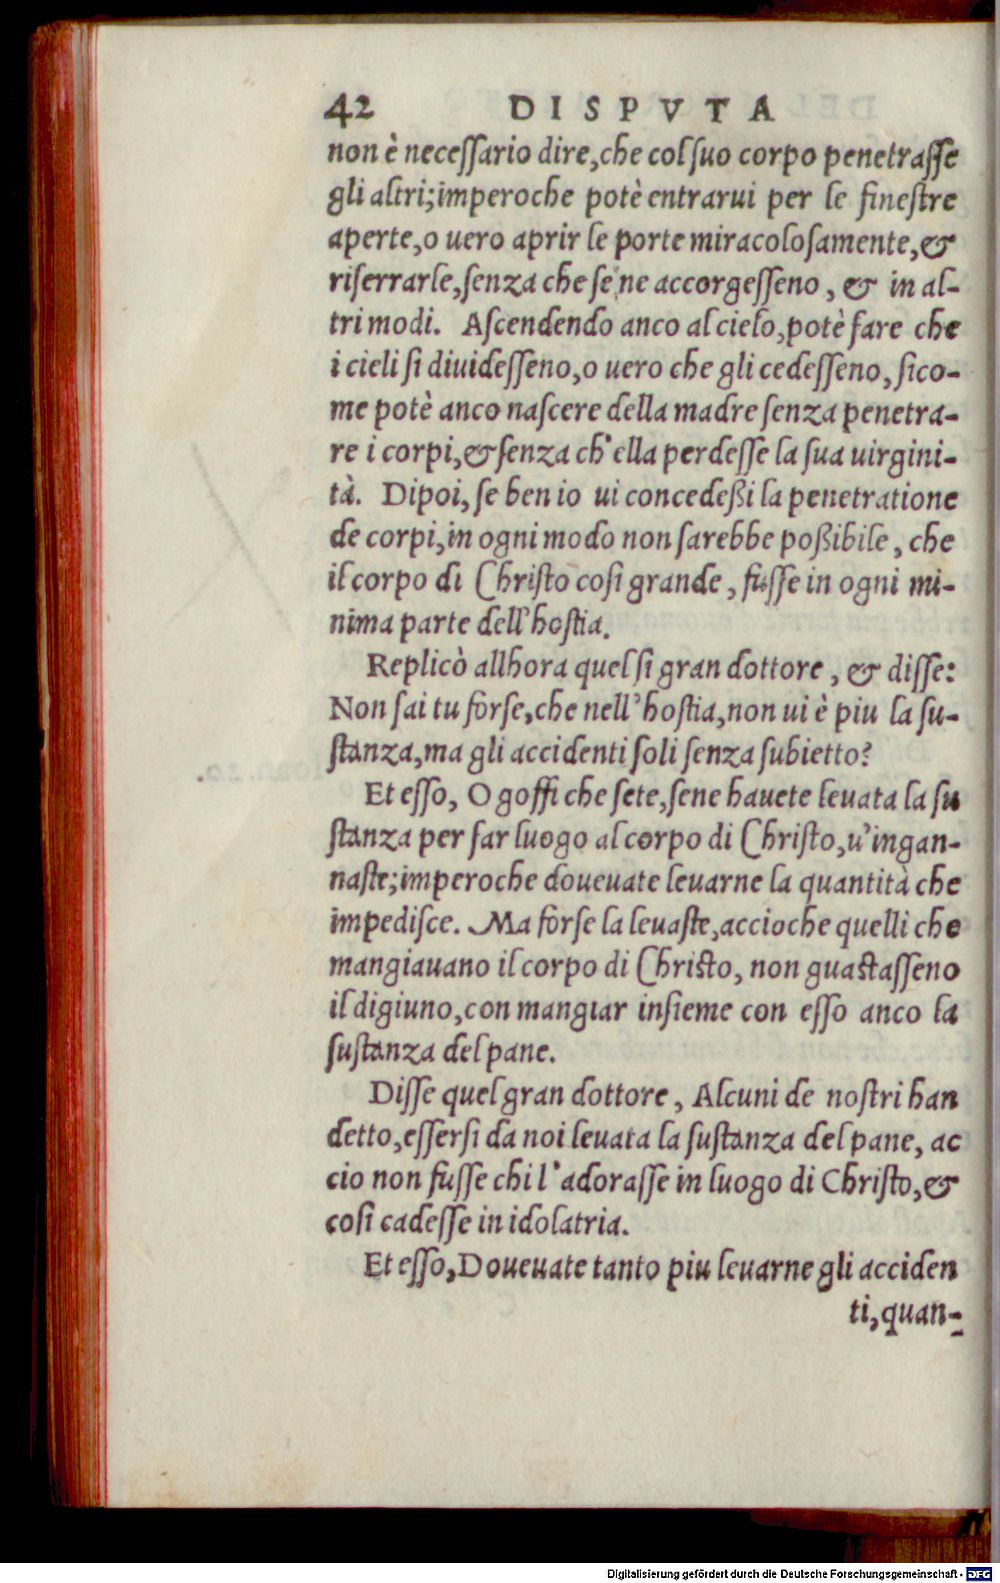 42 DISPVTA
non è neceſſario dire, che col ſuo corpo penetraſſe
gli altri; imperoche potè entrarui per le fineſtre
aperte, o uero aprir le porte miracoloſamente, &
riſerrarle, ſenza che ſe ne accorgeſſeno, & in al-
tri modi. Aſcendendo anco al cielo, potè fare che
i cieli ſi diuideſſeno, o uero che gli cedeſſeno, ſico-
me potè anco naſcere della madre ſenza penetra-
re i corpi, & ſenza ch'ella perdeſſe la ſua uirgini-
tà. Dipoi, ſe ben io ui concedeßi la penetratione
de corpi, in ogni modo non ſarebbe poßibile, che
il corpo di Chriſto coſi grande, fuſſe in ogni mi-
nima parte dell'hoſtia.
Replicò allhora quel ſi gran dottore, & diſſe:
Non ſai tu forſe, che nell'hoſtia, non ui è piu la ſu-
ſtanza, ma gli accidenti ſoli ſenza ſubietto?
Et eſſo, O goffi che ſete, ſene hauete leuata la ſu
ſtanza per far luogo al corpo di Chriſto, u'ingan-
naſte; imperoche doueuate leuarne la quantità che
impediſce. Ma forſe la leuaſte, accioche quelli che
mangiauano il corpo di Chriſto, non guaſtaſſeno
il digiuno, con mangiar inſieme con eſſo anco la
ſuſtanza del pane.
Diſſe quel gran dottore, Alcuni de noſtri han
detto, eſſerſi da noi leuata la ſuſtanza del pane, ac
cio non fuſſe chi l'adoraſſe in luogo di Chriſto, &
coſi cadeſſe in idolatria.
Et eſſo, Doueuate tanto piu leuarne gli acciden
ti, quan-
Digitalisierung gefördert durch die Deutsche Forschungsgemeinschaft - DFG